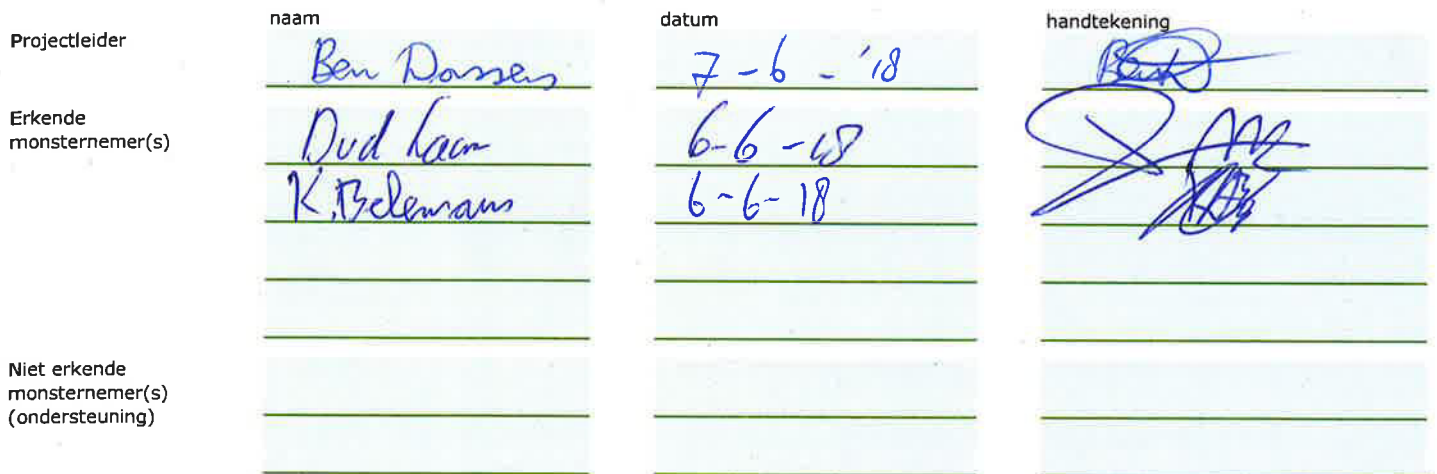 naam datum handtekening
Projectleider Ben Dossers 7-6-'18
Erkende
monsternemer(s) 6-6-18
K. Belemans 6-6-18
Niet erkende
monsternemer(s)
(ondersteuning)